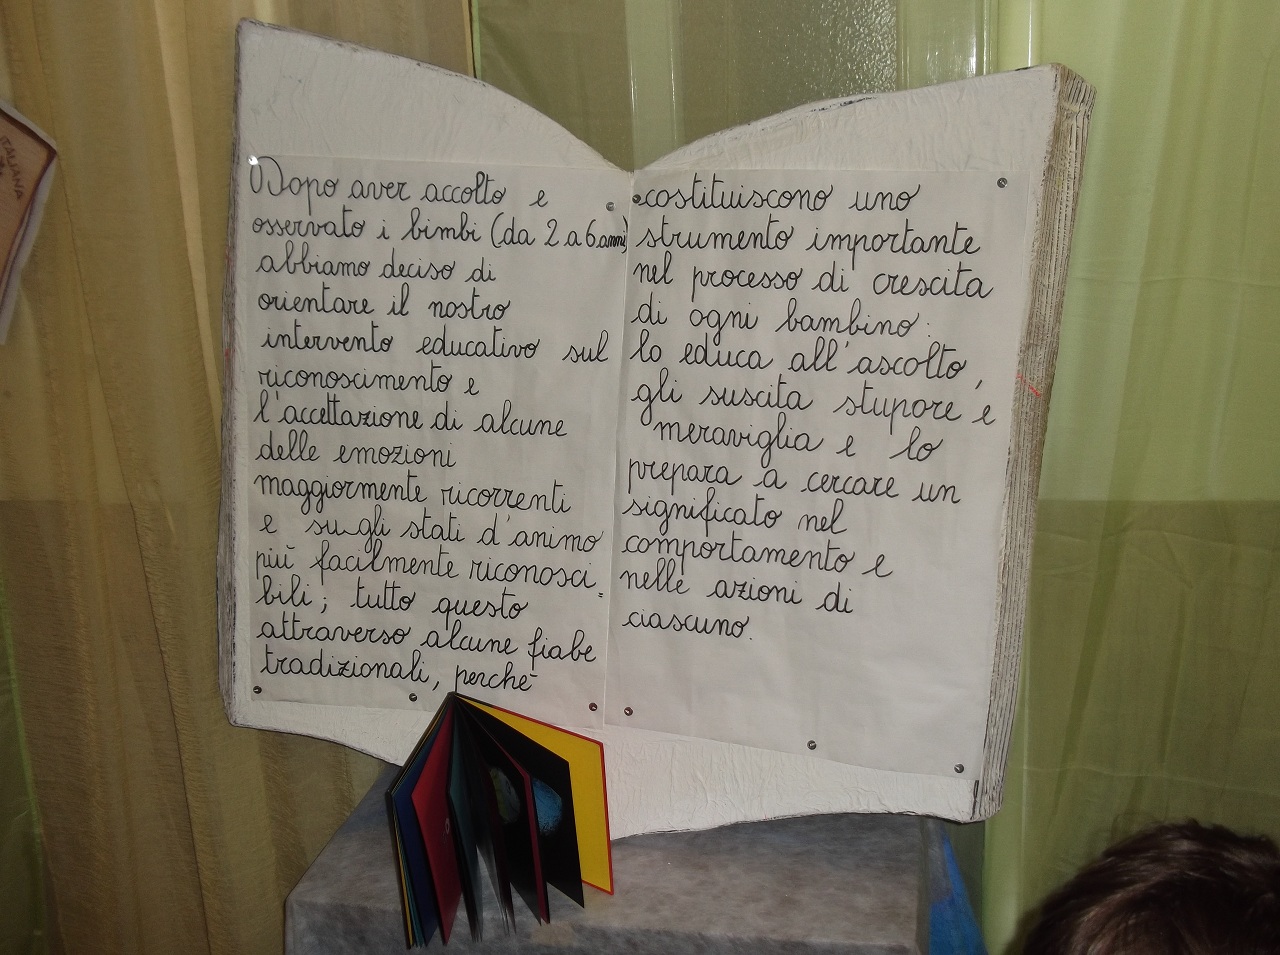 ITALIANA
Dopo aver accolto e
osservato i bimbi (da 2 a 6 anni)
abbiamo deciso di
orientare il nostro
intervento educativo sul
riconoscimento e
l'accettazione di alcune
delle emozioni
maggiormente ricorrenti
e su gli stati d'animo
più facilmente riconosci=
bili; tutto questo
attraverso alcune fiabe
tradizionali, perchè
costituiscono uno
strumento importante
nel processo di crescita
di ogni bambino:
lo educa all'ascolto,
gli suscita stupore e
meraviglia e lo
prepara a cercare un
significato nel
comportamento e
nelle azioni di
ciascuno.